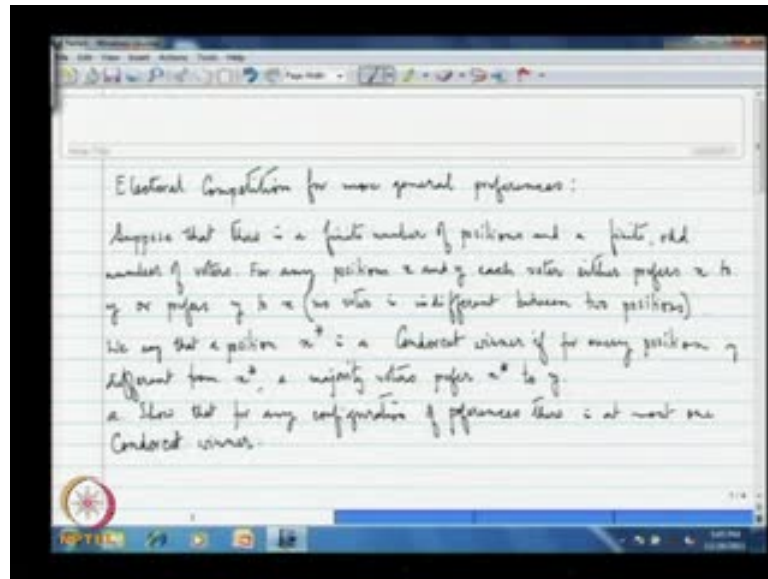 Electoral Competition for more general preferences:
Suppose that there is a finite number of positions and a finite, odd
number of voters. For any positions x and y each voter either prefers x to
y or prefers y to x (no voter is indifferent between two positions)
We say that a position x* is a Condorcet winner if for every position y
different from x*, a majority voters prefer x* to y.
a Show that for any configuration of preferences there is at most one
Condorcet winner.
NPTEL